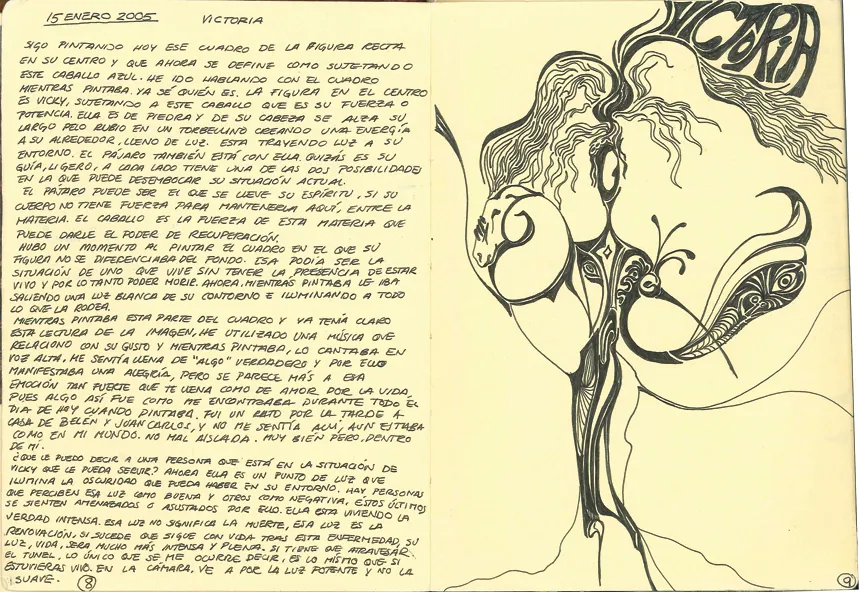 15 ENERO 2005 VICTORIA
SIGO PINTANDO HOY ESE CUADRO DE LA FIGURA RECTA
EN SU CENTRO Y QUE AHORA SE DEFINE COMO SUJETANDO
ESTE CABALLO AZUL. HE IDO HABLANDO CON EL CUADRO
MIENTRAS PINTABA. YA SÉ QUIÉN ES. LA FIGURA EN EL CENTRO
ES VICKY, SUJETANDO A ESTE CABALLO QUE ES SU FUERZA O
POTENCIA. ELLA ES DE PIEDRA Y DE SU CABEZA SE ALZA SU
LARGO PELO RUBIO EN UN TORBELLINO CREANDO UNA ENERGÍA
A SU ALREDEDOR, LLENO DE LUZ. ESTA TRAYENDO LUZ A SU
ENTORNO. EL PÁJARO TAMBIÉN ESTÁ CON ELLA. QUIZÁS ES SU
GUÍA, LIGERO, A CADA LADO TIENE UNA DE LAS DOS POSIBILIDADES
EN LA QUE PUEDE DESEMBOCAR SU SITUACIÓN ACTUAL.
EL PÁJARO PUEDE SER EL QUE SE LLEVE SU ESPÍRITU, SI SU
CUERPO NO TIENE FUERZA PARA MANTENERLA AQUÍ, ENTRE LA
MATERIA. EL CABALLO ES LA FUERZA DE ESTA MATERIA QUE
PUEDE DARLE EL PODER DE RECUPERACIÓN.
HUBO UN MOMENTO AL PINTAR EL CUADRO EN EL QUE SU
FIGURA NO SE DIFERENCIABA DEL FONDO. ESA PODÍA SER LA
SITUACIÓN DE UNO QUE VIVE SIN TENER LA PRESENCIA DE ESTAR
VIVO Y POR LO TANTO PODER MORIR. AHORA, MIENTRAS PINTABA LE IBA
SALIENDO UNA LUZ BLANCA DE SU CONTORNO E ILUMINANDO A TODO
LO QUE LA RODEA.
MIENTRAS PINTABA ESTA PARTE DEL CUADRO Y YA TENÍA CLARO
ESTA LECTURA DE LA IMAGEN, HE UTILIZADO UNA MÚSICA QUE
RELACIONO CON SU GUSTO Y MIENTRAS PINTABA, LO CANTABA EN
VOZ ALTA, ME SENTÍA LLENA DE "ALGO" VERDADERO Y POR ELLO
MANIFESTABA UNA ALEGRÍA, PERO SE PARECE MÁS A ESA
EMOCIÓN TAN FUERTE QUE TE LLENA COMO DE AMOR POR LA VIDA,
PUES ALGO ASÍ FUE COMO ME ENCONTRABA DURANTE TODO EL
DIA DE HOY CUANDO PINTABA. FUI UN RATO POR LA TARDE A
CASA DE BELÉN Y JUAN CARLOS, Y NO ME SENTÍA ALLÍ, AUN ESTABA
COMO EN MI MUNDO. NO MAL, AISLADA. MUY BIEN PERO, DENTRO
DE MI.
¿QUE LE PUEDO DECIR A UNA PERSONA QUE ESTÁ EN LA SITUACIÓN DE
VICKY QUE LE PUEDA SERVIR? AHORA ELLA ES UN PUNTO DE LUZ QUE
ILUMINA LA OSCURIDAD QUE PUEDA HABER EN SU ENTORNO. HAY PERSONAS
QUE PERCIBEN ESA LUZ COMO BUENA Y OTROS COMO NEGATIVA, ESTOS ÚLTIMOS
SE SIENTEN AMENAZADOS O ASUSTADOS POR ELLO. ELLA ESTA VIVIENDO LA
VERDAD INTENSA. ESA LUZ NO SIGNIFICA LA MUERTE, ESA LUZ ES LA
RENOVACIÓN. SI SUCEDE QUE SIGUE CON VIDA TRAS ESTA ENFERMEDAD, SU
LUZ, VIDA, SERA MUCHO MÁS INTENSA Y PLENA. SI TIENE QUE ATRAVESAR
EL TUNEL, LO ÚNICO QUE SE ME OCURRE DECIR, ES LO MISMO QUE SI
ESTUVIERAS VIVO. EN LA CÁMARA, VE A POR LA LUZ POTENTE Y NO LA
SUAVE.
8
VICTORIA
9